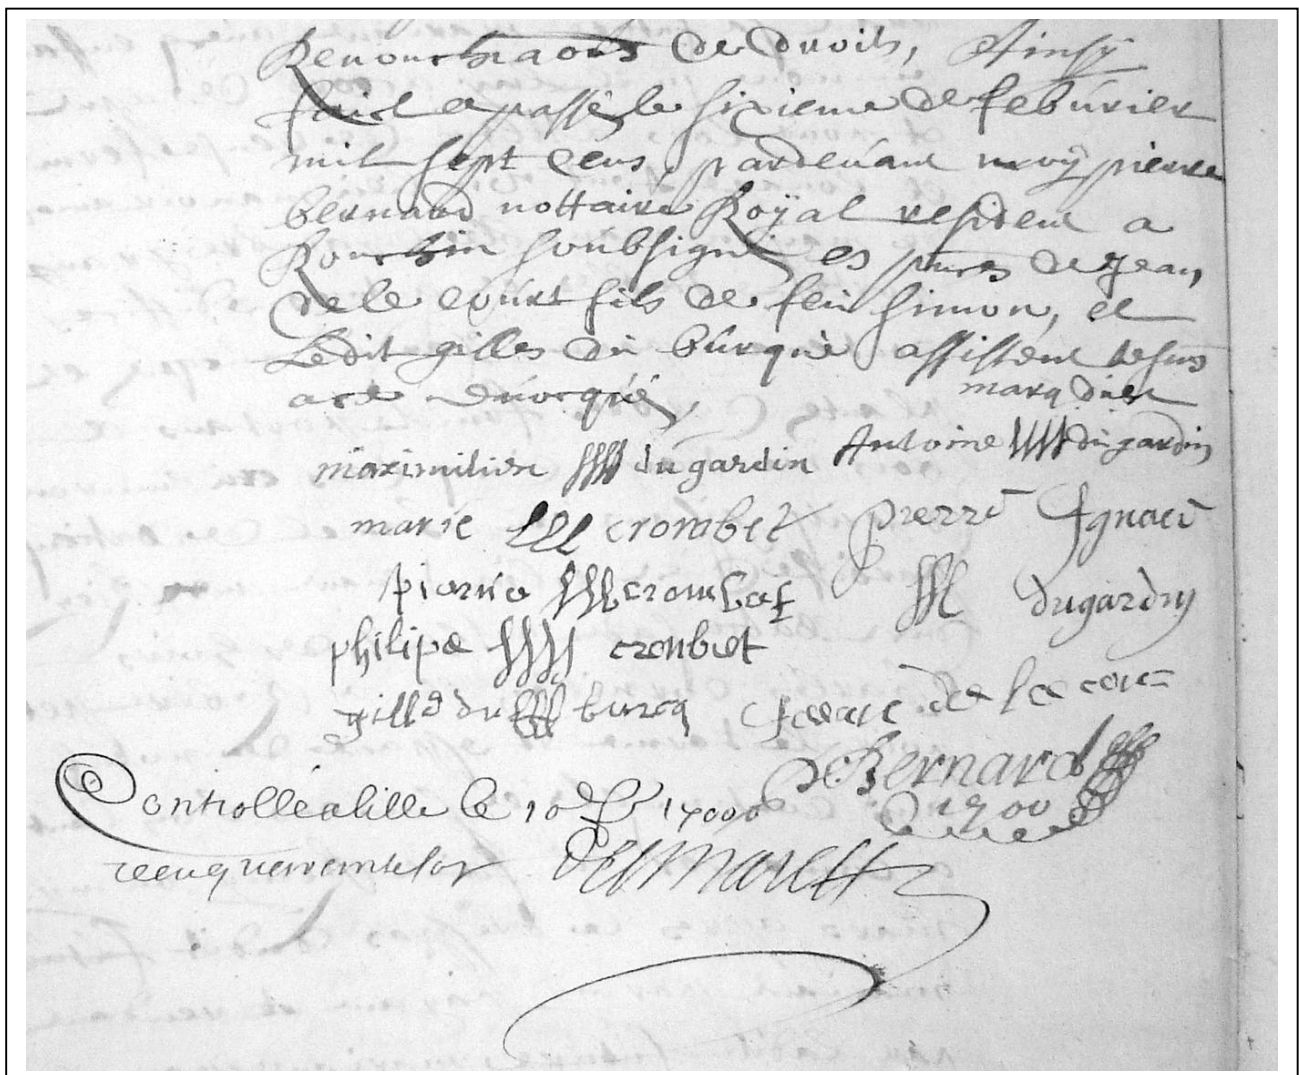 Renonchâons de droits, Ainsÿ
faict et passé le sixieme de febúrier
mil sept cens, pardeuant moy pierre
bernard nottaire Royal resident a
Ronchin soubsigné es pnces de Jean
de le court fils de feu simon, et
Ledit gilles du búrque assistent
acd euocqué,
marq
maximilien dugardin Antoine du gardin
marie crombet pierre Ignace
pierre crombet dugardin
philipe crombet
gille du burcq de le cour
Bernard
Controllé a lille le 10e 1700
1700
Desmarest